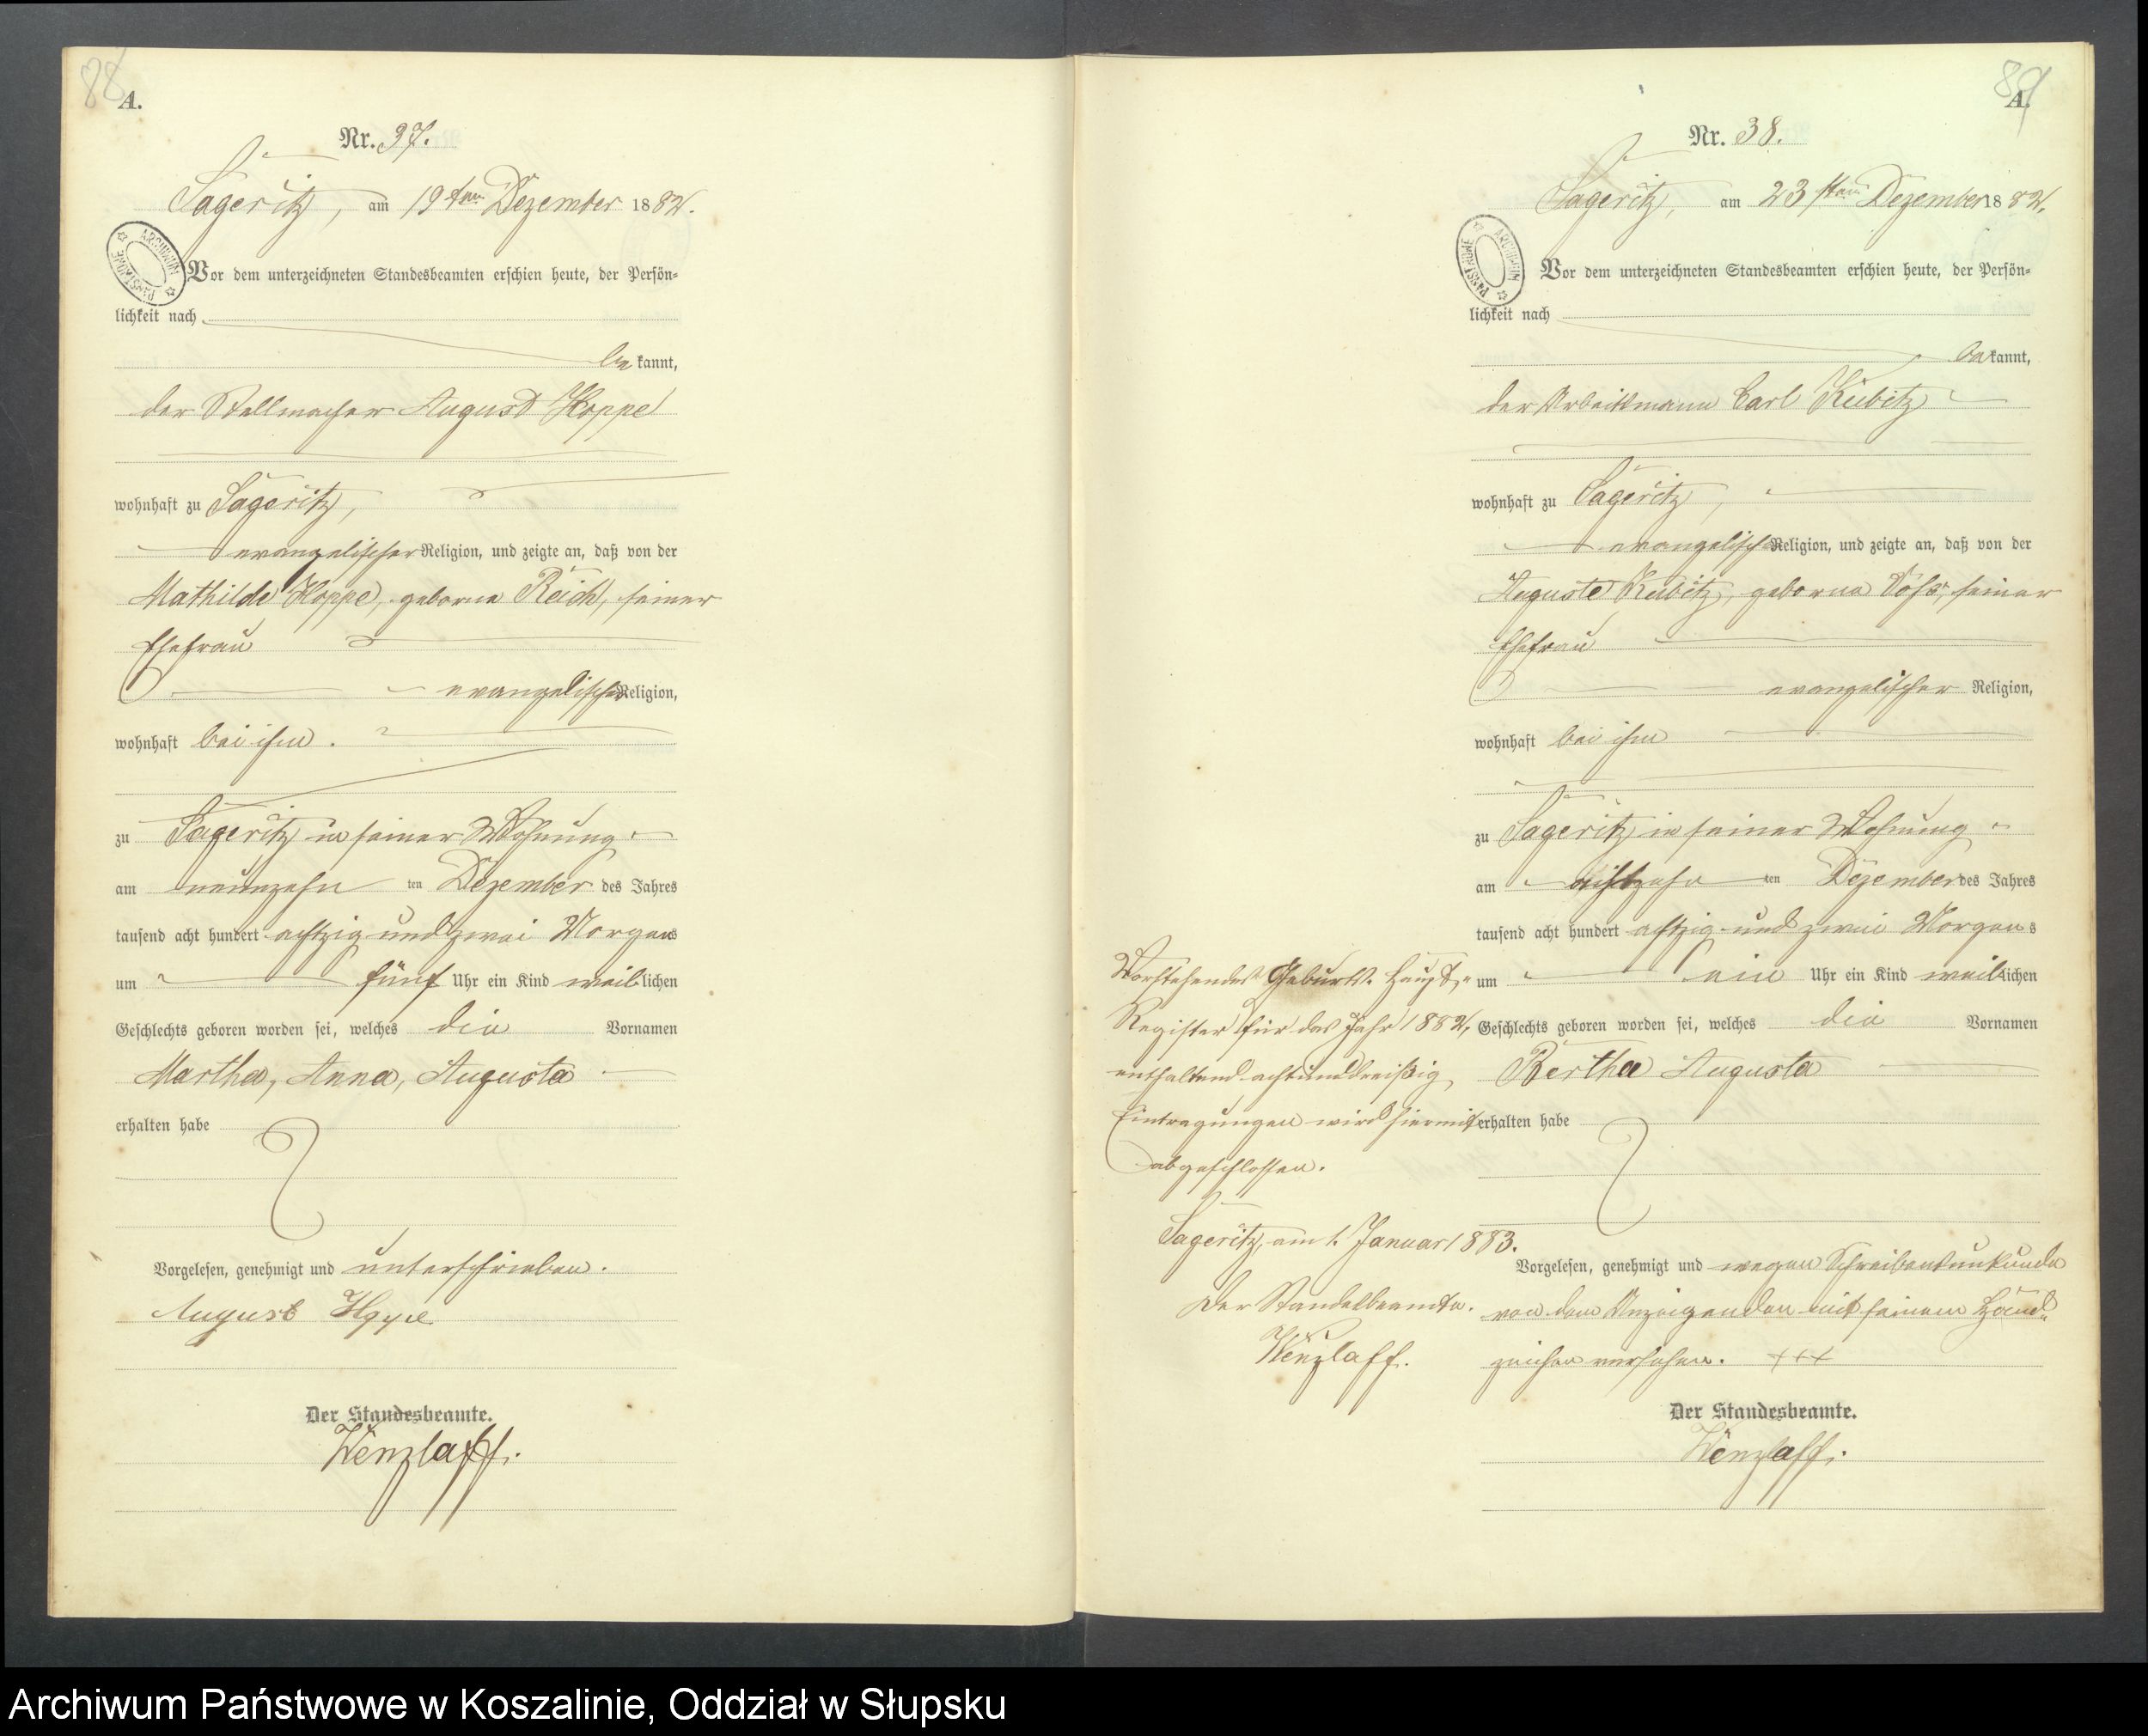 88
A.
Nr. 37.
Sageritz, am 19ten Dezember 1882.
ARCHIWUM PAŃSTWOWE
Vor dem unterzeichneten Standesbeamten erschien heute, der Persön-
lichkeit nach
be kannt,
der Stellmacher August Hoppe
wohnhaft zu Sageritz,
evangelischer Religion, und zeigte an, daß von der
Mathilde Hoppe, geborne Reich, seiner
Ehefrau
evangelischer Religion,
wohnhaft bei ihm.
zu Sageritz in seiner Wohnung
am neunzehn ten Dezember des Jahres
tausend acht hundert achtzig und zwei Morgens
um fünf Uhr ein Kind weiblichen
Geschlechts geboren worden sei, welches die Vornamen
Martha, Anna, Augusta
erhalten habe
Vorgelesen, genehmigt und unterschrieben.
August Hoppe
Der Standesbeamte.
Wenzlaff.
89
A.
Nr. 38.
Sageritz, am 23sten Dezember 1882.
ARCHIWUM PAŃSTWOWE
Vor dem unterzeichneten Standesbeamten erschien heute, der Persön-
lichkeit nach
be kannt,
der Arbeitsmann Carl Kubitz
wohnhaft zu Sageritz,
evangelischer Religion, und zeigte an, daß von der
Auguste Kubitz, geborne Voß, seiner
Ehefrau
evangelischer Religion,
wohnhaft bei ihm
zu Sageritz in seiner Wohnung
am achtzehn ten Dezember des Jahres
tausend acht hundert achtzig und zwei Morgens
um ein Uhr ein Kind weiblichen
Geschlechts geboren worden sei, welches die Vornamen
Bertha Augusta
erhalten habe
Vorgelesen, genehmigt und wegen Schreibensunkunde
von dem Anzeigenden mit seinem Hand-
zeichen versehen. +++
Der Standesbeamte.
Wenzlaff.
Vorstehendes Geburts-Haupt-
Register für das Jahr 1882,
enthaltend achtunddreißig
Eintragungen wird hiermit
abgeschlossen.
Sageritz, am 1. Januar 1883.
Der Standesbeamte.
Wenzlaff.
Archiwum Państwowe w Koszalinie, Oddział w Słupsku